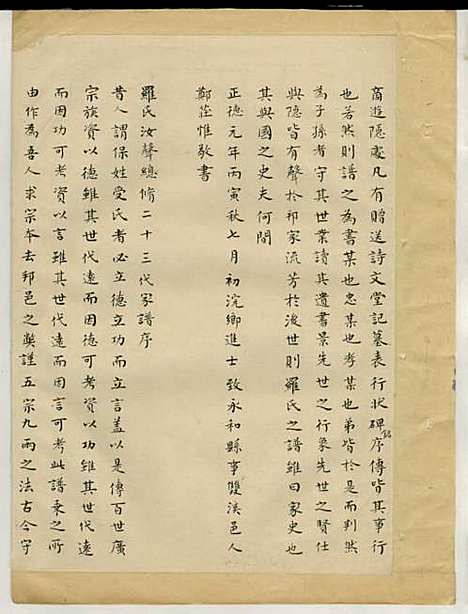 商遊隱處凡有贈送詩文堂記墓表行狀碑銘序傳皆其事行
也若然則譜之為書某也忠某也孝某也弟皆於是而判然
為子孫者守其世業讀其遺書景先世之行象先世之賢仕
與隱皆有聲於邦家流芳於後世則羅氏之譜雖曰家史也
其與國之史夫何間
正德元年丙寅秋七月初浣鄉進士致永和縣事雙溪邑人
鄭莊惟敬書
羅氏汝聲總脩二十三代家譜序
昔人謂保姓受氏者必立德立功而立言蓋以是傳百世廣
宗族資以德雖其世代遠而因德可考資以功雖其世代遠
而因功可考資以言雖其世代遠而因言可考此譜乘之所
由作為吾人求宗本去邦邑之弊謹五宗九兩之法古今守